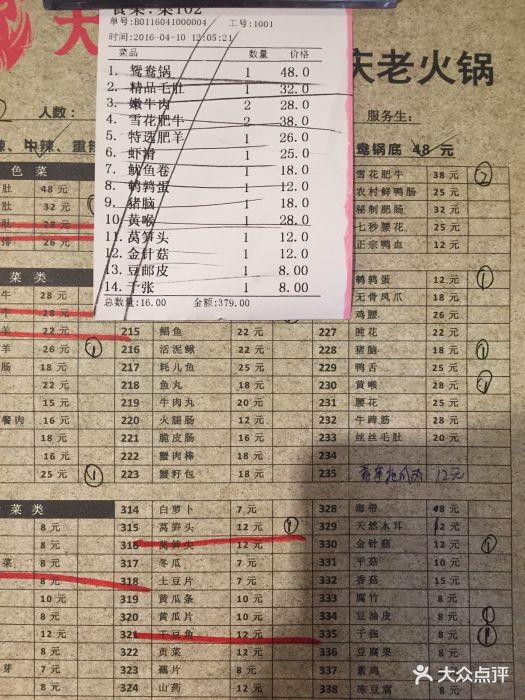 食菜:菜102
单号:B0116041000004 工号:1001
时间:2016-04-10 12:05:21
菜品 数量 价格
1. 鸳鸯锅 1 48.0
2. 精品毛肚 1 32.0
3. 嫩牛肉 2 28.0
4. 雪花肥牛 2 38.0
5. 特选肥羊 1 26.0
6. 虾滑 1 25.0
7. 鱿鱼卷 1 18.0
8. 鹌鹑蛋 1 12.0
9. 猪脑 1 18.0
10. 黄喉 1 28.0
11. 莴笋头 1 12.0
12. 金针菇 1 12.0
13. 豆邮皮 1 8.00
14. 千张 1 8.00
总数量:16.00 金额:379.00
大 庆老火锅
人数: 服务生:
、中辣、重辣 鸳锅底 48 元
色菜
肚 48 元 雪花肥牛 38 元 2
肚 32 元 1 农村鲜鸭肠 25 元
肚 28 元 秘制肥肠 32 元
排 26 元 七秒腰花 25 元
正宗鸭血 12 元
菜类 鹌鹑蛋 12 元 1
牛 28 元 无骨凤爪 18 元
牛 28 元 鸡腰 26 元
羊 22 元 215 鲷鱼 22 元 227 肫花 22 元
羊 26 元 1 216 活泥鳅 22 元 228 猪脑 18 元 1
肠 18 元 217 耗儿鱼 25 元 229 鸭舌 25 元
22 元 218 鱼丸 18 元 230 黄喉 28 元 1
15 元 219 牛肉丸 20 元 231 腰花 25 元
餐肉 16 元 220 火腿肠 12 元 232 牛蹄筋 28 元
18 元 221 脆皮肠 16 元 233 丝丝毛肚 20 元
22 元 222 蟹肉棒 18 元 234 元
25 元 1 223 蟹籽包 18 元 235 12元
菜类 314 白萝卜 7 元 328 海带 8 元
8 元 315 莴笋头 12 元 1 329 天然木耳 12 元
8 元 316 莴笋尖 12 元 330 金针菇 12 元 1
菜 8 元 317 冬瓜 7 元 331 平菇 10 元
8 元 318 土豆片 7 元 332 香菇 15 元
10 元 319 黄瓜条 10 元 333 腐竹 8 元
10 元 320 黄瓜片 10 元 334 豆油皮 8 元 1
12 元 321 干豆鱼 12 元 335 千张 8 元 1
8 元 322 贡菜 12 元 336 豆腐果 8 元
芽 7 元 323 藕片 8 元 337 素鸡 8 元
8 元 324 山药 12 元 338 冻豆腐 8 元
大众点评